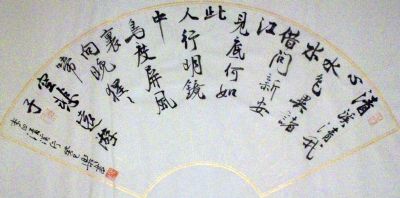 清溪清我
心
水色異諸
水
借問新安
江
見底何如
此
人行明鏡
中
鳥度屏風
裏
向晚猩〻
啼
空悲遠游
子
李白清溪行